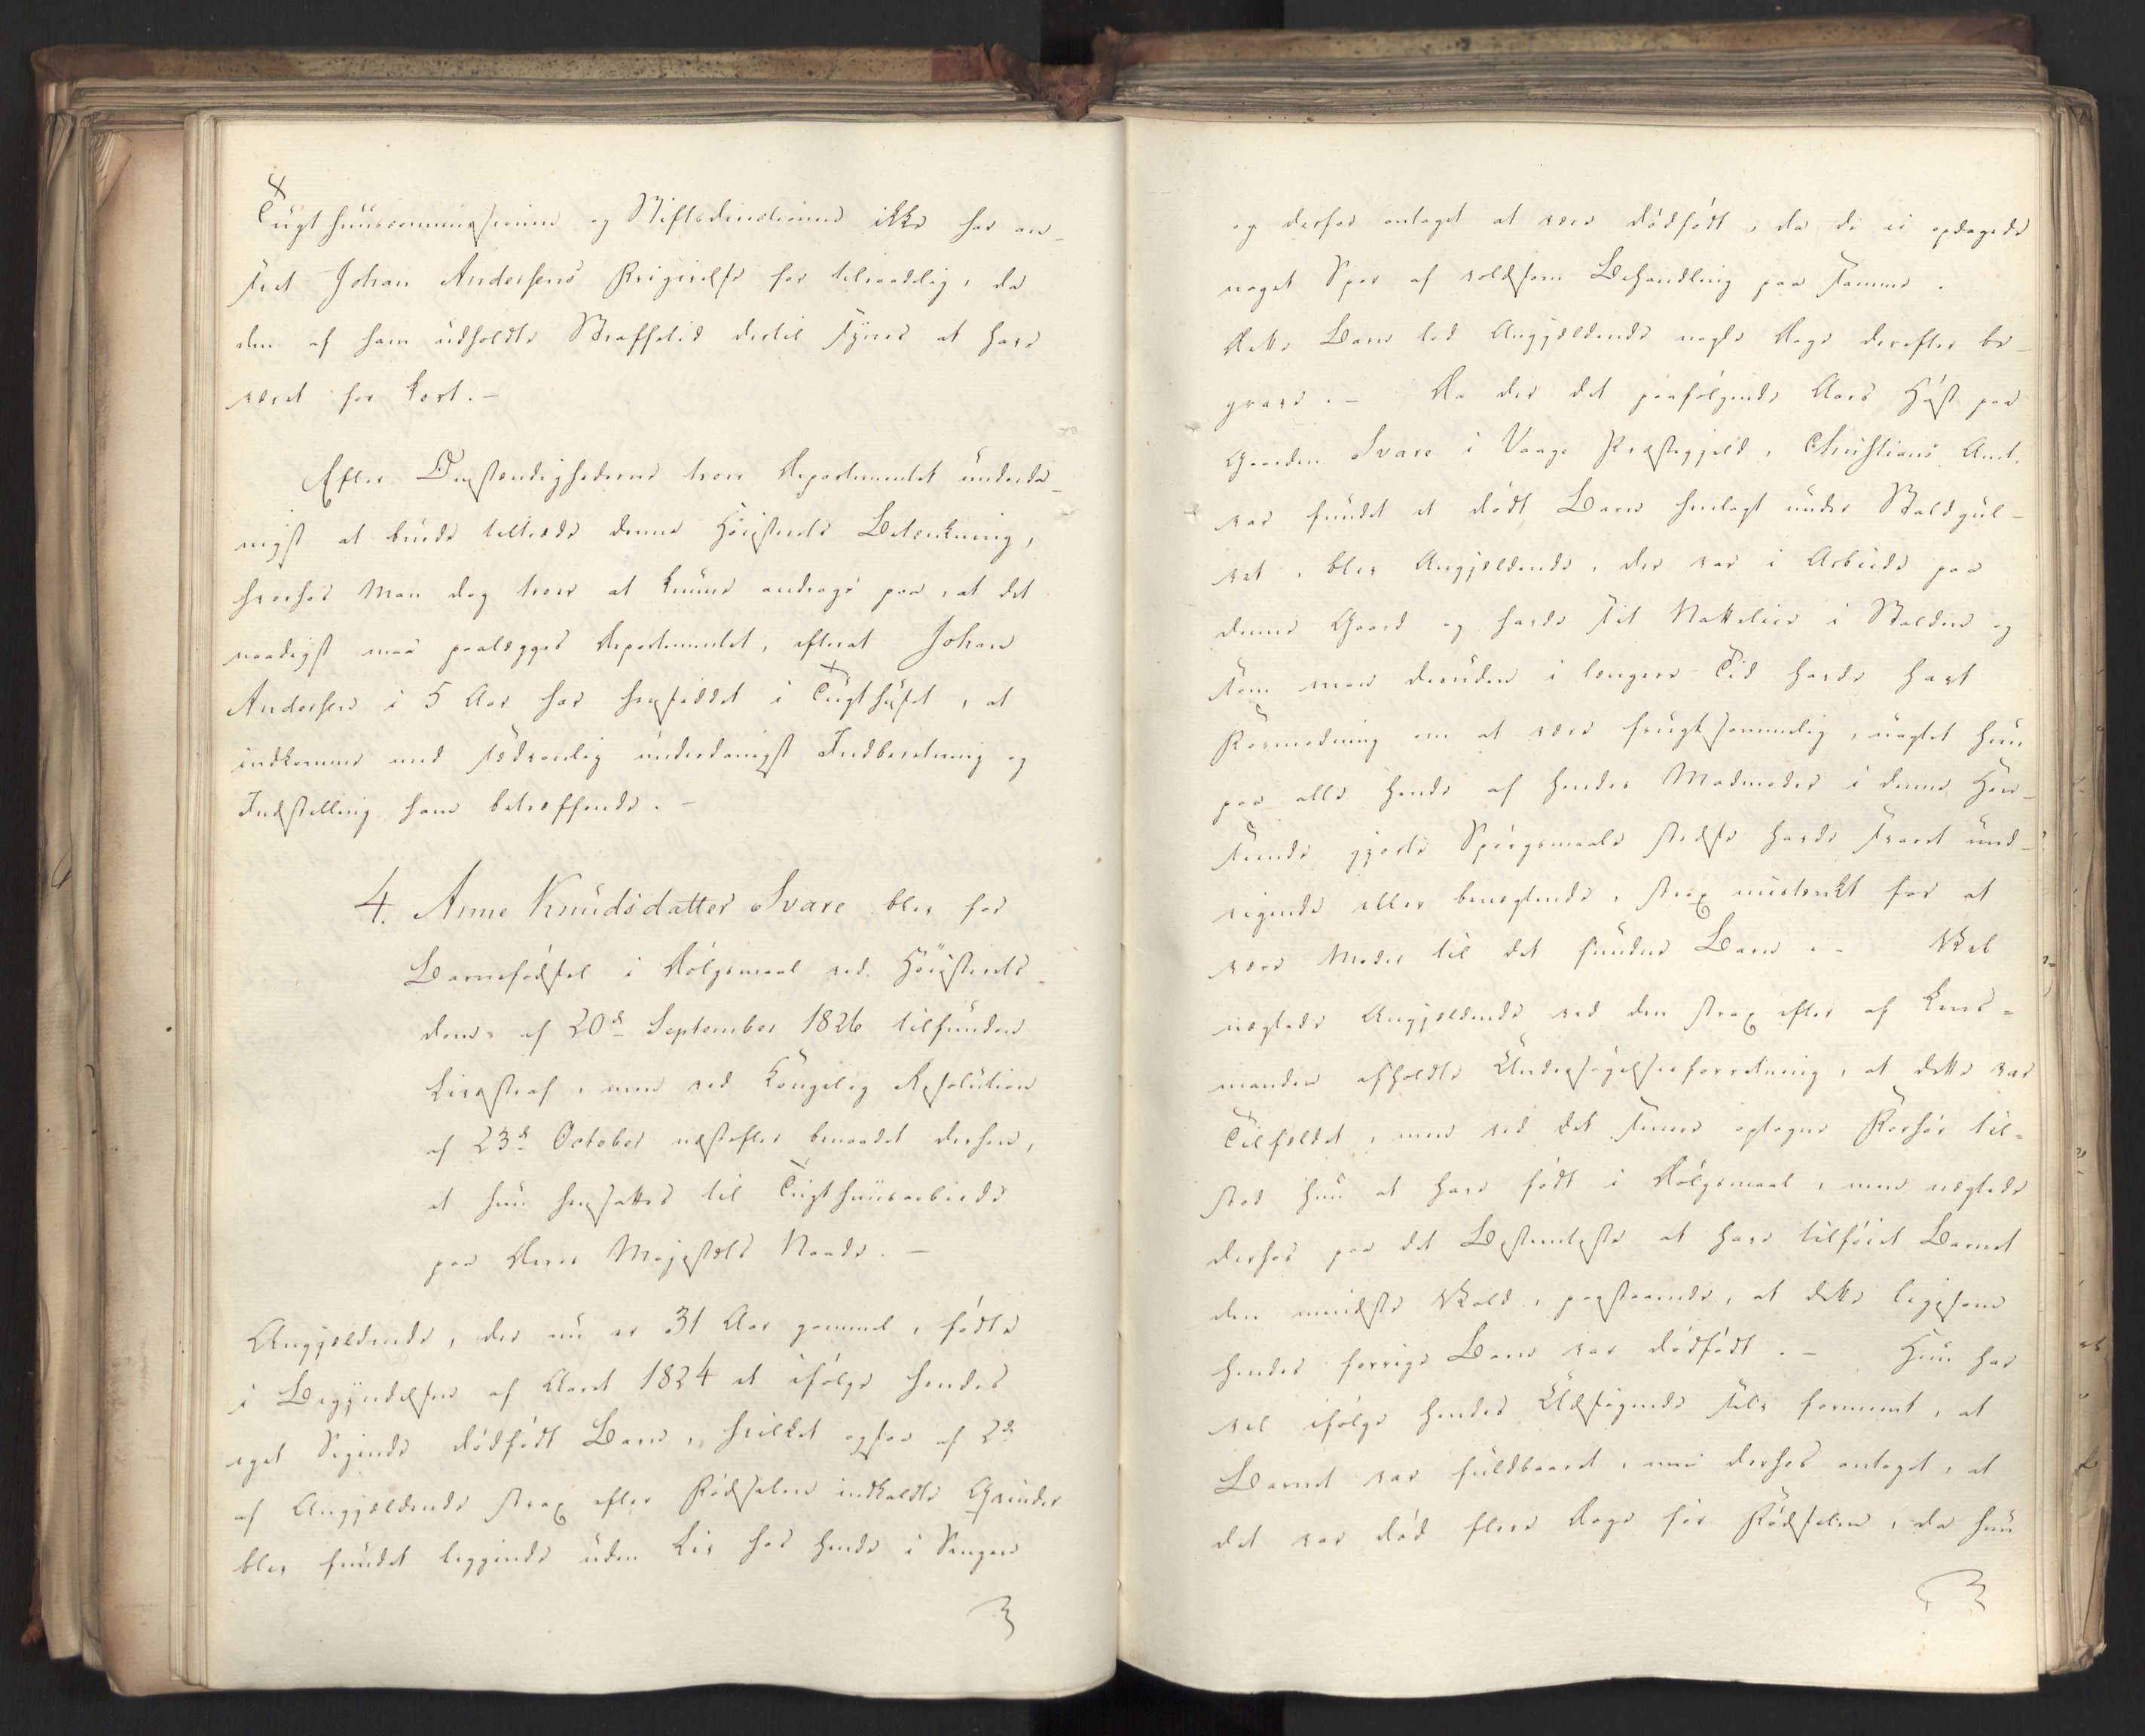 Tugthuuscommissionen og Stiftsdirectionen ikke har an-
seet Johan Andersens Frigivelse for tilraadelig, da
den af ham udholdte Straffetid dertil synes at have
været for kort.-
Efter Omstændighederne troer Departementet underda-
nigst at burde tiltræde denne Høiesterets Betænkning,
hvorhos man dog troer at kunne andrage paa, at det
naadigst maa paalægges Departementet, efterat Johan
Andersen i 5 Aar har hensiddet i Tugthuset, at
indkomme med sædvanlig underdanigst Indberetning og
Indstilling ham betræffende. -
4. Anne Knudsdatter Svare blev for
Barnefødsel i Dølgsmaal ved Høiesterets-
dom af 20de September 1826 tilfunden
Livsstraf, men ved Kongelig Resolution
af 23de October næstefter benaadet derhen,
at hun hensattes til Tugthuusarbeide
paa Deres Majestæts Naade. -
Angjældende, der nu er 31 Aar gammel, fødte
i Begyndelsen af Aaret 1824 et ifølge hendes
eget Sigende dødfødt Barn, hvilket ogsaa af 2de
af Angjældende strax efter Fødselen indkaldte Qvinder
blev fundet liggende uden Liv hos hende i Sengen
og derfor antaget at være dødfødt, da de ei opdagede
noget Spor af voldsom Behandling paa samme.
Dette Barn lod Angjældende nogle Dage derefter be-
grave. - Da der det paafølgende Aars Høst paa
Gaarden Svare i Vaage Præstegjeld, Christians Amt,
var fundet et dødt Barn henlagt under Staldgul-
vet, blev Angjældende, der var i Arbeide paa
denne Gaard og havde sit Natteleie i Stalden og
som man desuden i længere Tid havde havt
Formodning om at være frugtsommelig, uagtet hun
paa alle hende af hendes Madmoder i denne Hen-
seende gjorte Spørgsmaale stedse havde svaret und-
vigende eller benægtende, strax mistænkt for at
være Moder til det fundne Barn. - Vel
nægtede Angjældende ved den strax efter af Lens-
manden afholdte Undersøgelsesforretning, at dette var
Tilfældet, men ved det senere optagne Forhør til-
stod hun at have født i Dølgsmaal, men nægtede
derhos paa det Bestemteste at have tilføiet Barnet
den mindste Vold, paastaaende, at dette ligesom
hendes forrige Barn var dødfødt. - Hun har
vel ifølge hendes Udsigende selv formeent, at
Barnet var fuldbaaret, men derhos antaget, at
det var død flere Dage før Fødselen, da hun